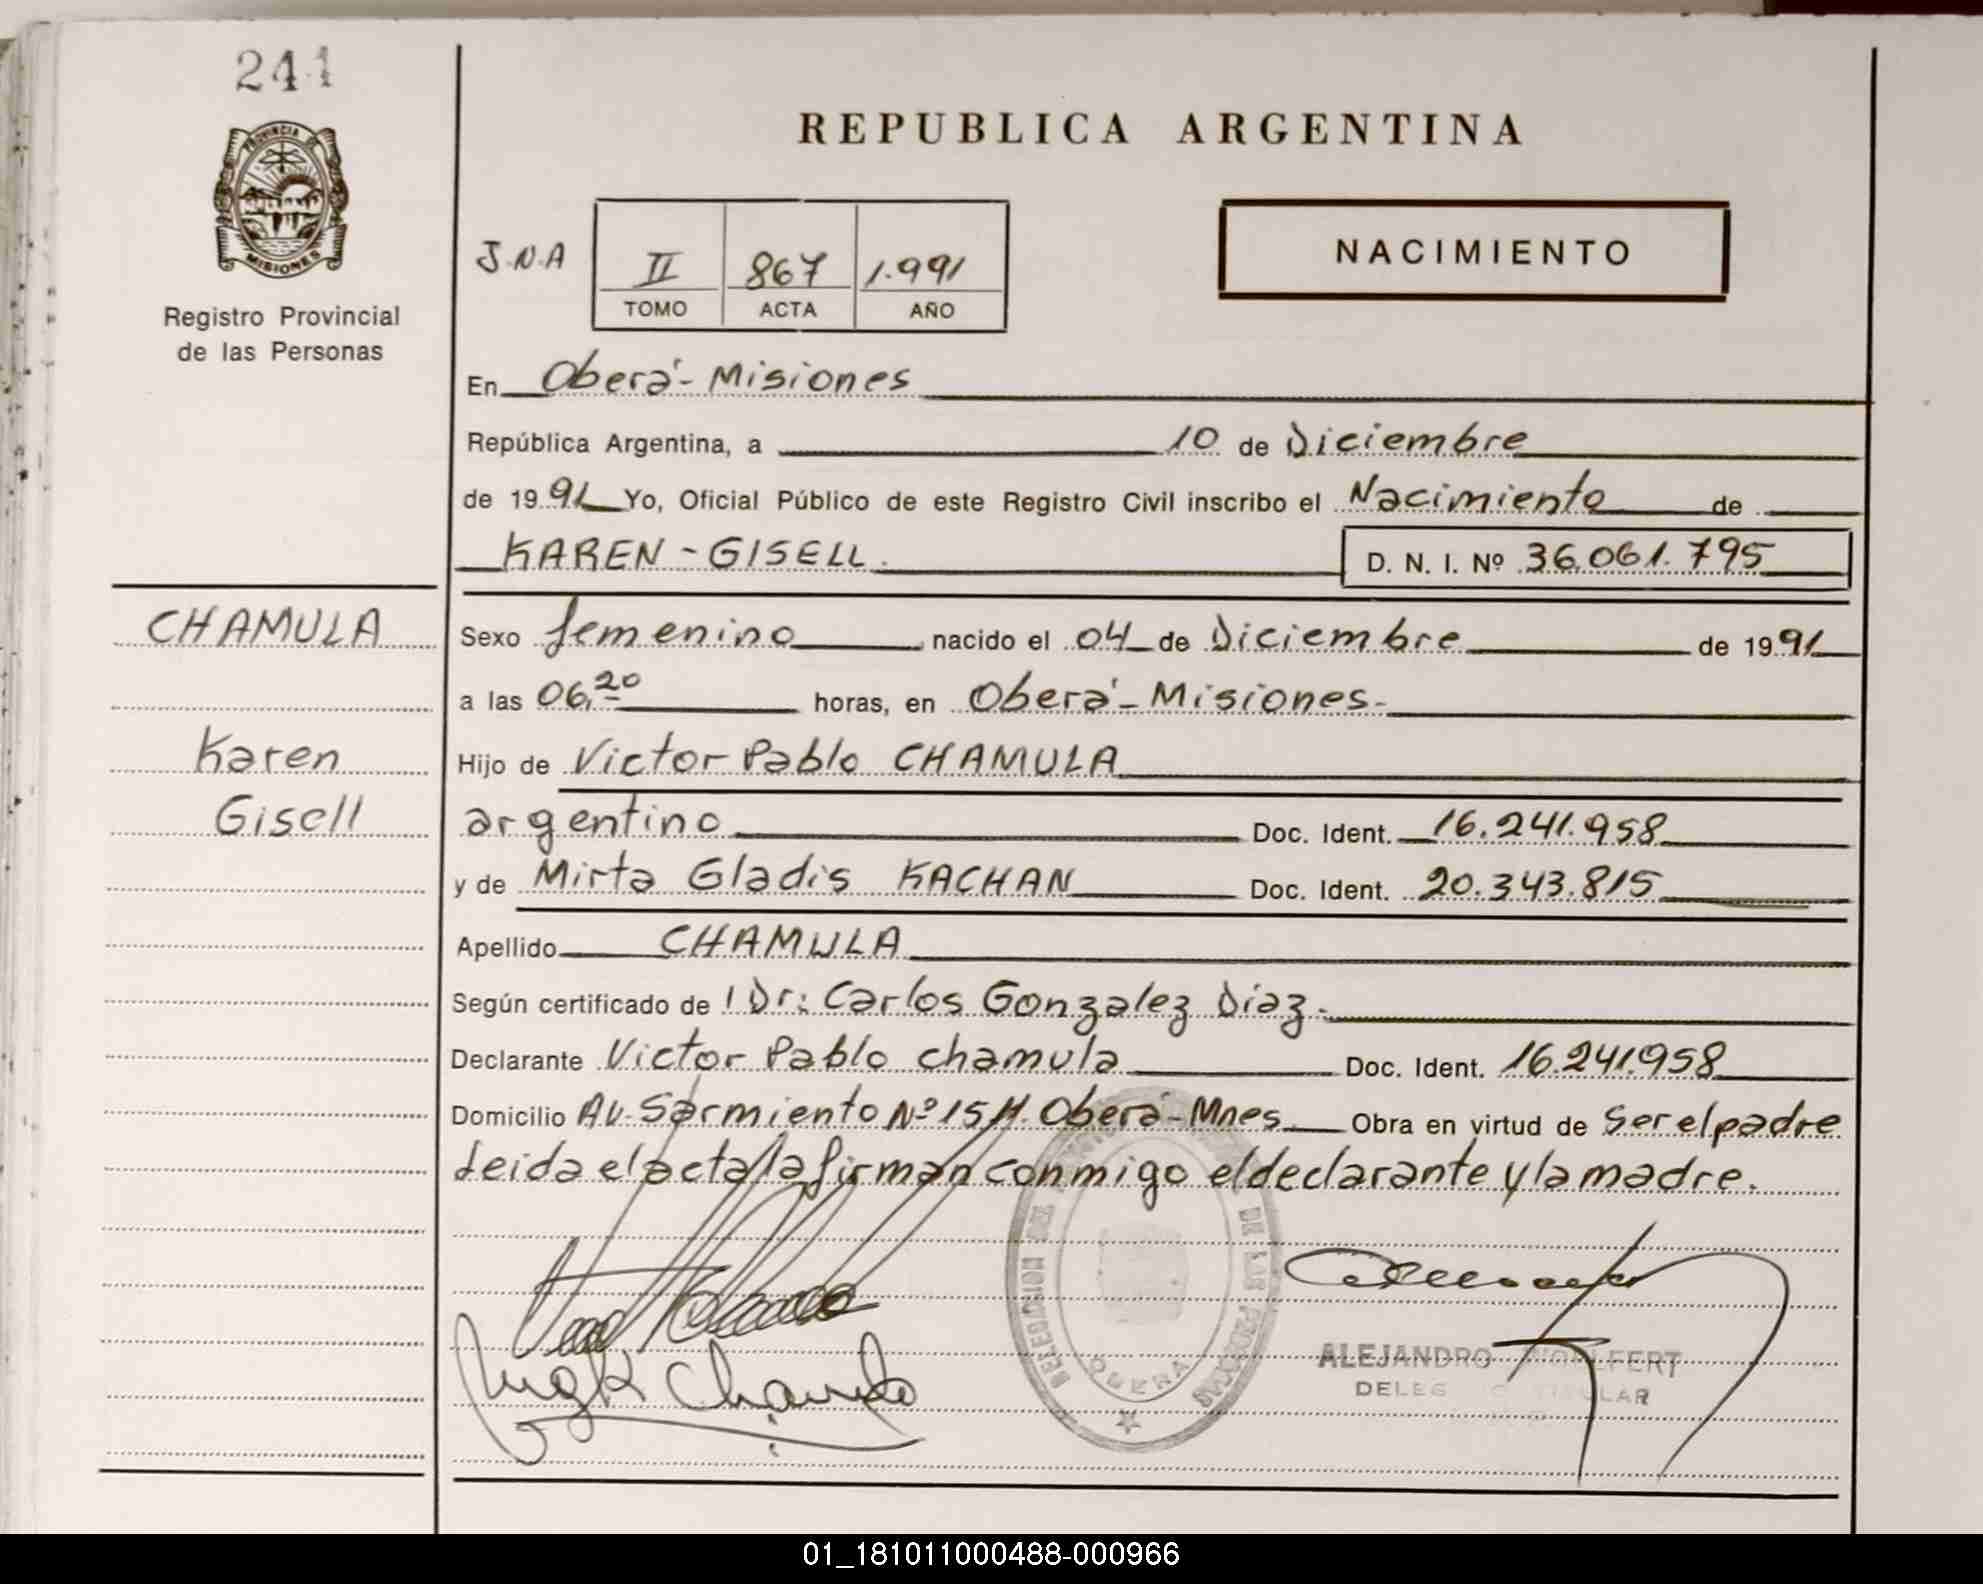 241
PROVINCIA DE
MISIONES
Registro Provincial
de las Personas
REPUBLICA ARGENTINA
J.N.A
II 867 1.991
TOMO ACTA AÑO
NACIMIENTO
En Oberá - Misiones
República Argentina, a 10 de Diciembre
de 1991 Yo, Oficial Público de este Registro Civil inscribo el Nacimiento de
KAREN - GISELL. D. N. I. Nº 36.061.795
CHAMULA
Karen
Gisell
Sexo femenino nacido el 04 de Diciembre de 1991
a las 06,20 horas, en Oberá - Misiones.
Hijo de Victor Pablo CHAMULA
argentino Doc. Ident. 16.241.958
y de Mirta Gladis KACHAN Doc. Ident. 20.343.815
Apellido CHAMULA
Según certificado de l Dr: Carlos Gonzalez Diaz.
Declarante Victor Pablo Chamula Doc. Ident. 16.241.958
Domicilio Av. Sarmiento Nº 1514. Oberá - Mnes. Obra en virtud de Ser el padre
Leida el acta la firman conmigo el declarante y la madre.
DELEGACION DEL DE LAS PERSONAS
OBERA
ALEJANDRO
01_181011000488-000966